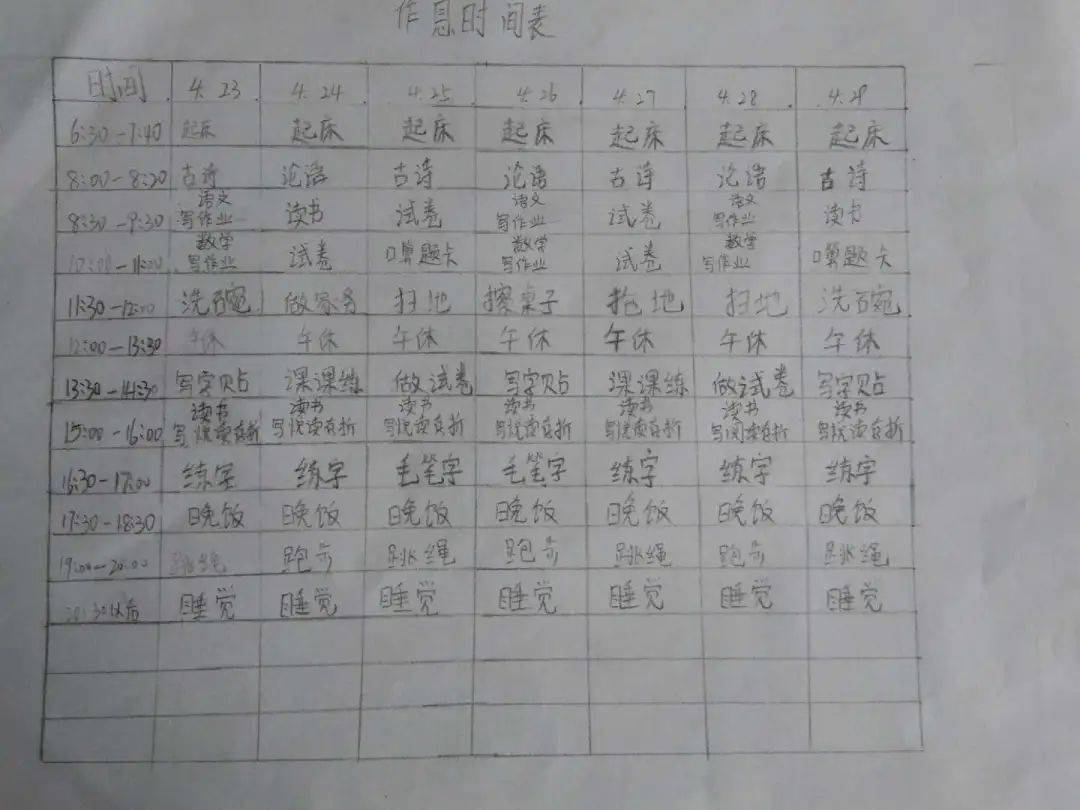 作息时间表
时间 4.23 4.24 4.25 4.26 4.27 4.28 4.29
6:30-7:40 起床 起床 起床 起床 起床 起床 起床
8:00-8:20 古诗 论语 古诗 论语 古诗 论语 古诗
8:30-9:30 语文写作业 读书 试卷 语文写作业 试卷 语文写作业 读书
10:00-11:00 数学写作业 试卷 口算题卡 数学写作业 试卷 数学写作业 口算题卡
11:30-12:00 洗碗 做家务 扫地 擦桌子 拖地 扫地 洗碗
12:00-13:30 午休 午休 午休 午休 午休 午休 午休
13:30-14:30 写字贴 课课练 做试卷 写字贴 课课练 做试卷 写字贴
15:00-16:00 读书写悦读存折 读书写悦读存折 读书写悦读存折 读书写悦读存折 读书写悦读存折 读书写阅读存折 读书写悦读存折
16:30-17:00 练字 练字 毛笔字 毛笔字 练字 练字 练字
17:30-18:30 晚饭 晚饭 晚饭 晚饭 晚饭 晚饭 晚饭
19:00-20:00 跳绳 跑步 跳绳 跑步 跳绳 跑步 跳绳
20:30以后 睡觉 睡觉 睡觉 睡觉 睡觉 睡觉 睡觉